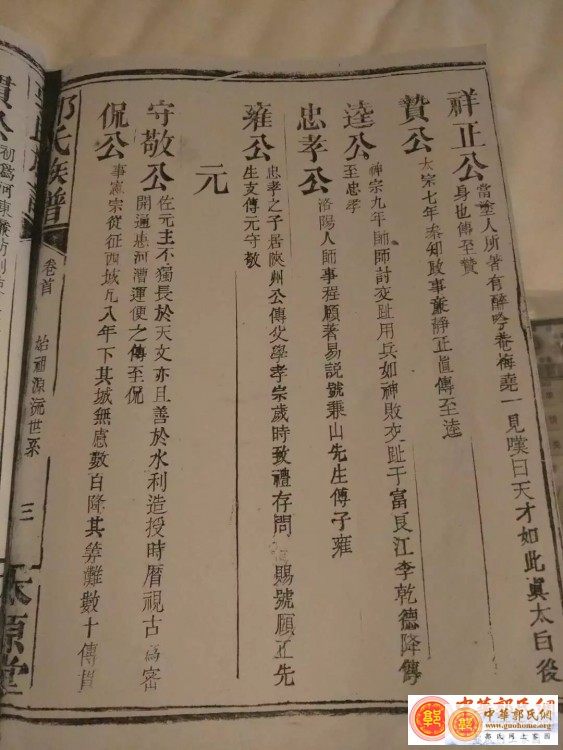 祥正公
當塗人所著有醉吟菴梅堯一見嘆曰天才如此眞太白後
身也傳至贊
贊公
太宗七年叅知政事兼靜正眞傳至逵
逵公
神宗九年帥師討交趾用兵如神敗交趾于富良江李乾德降傳
至忠孝
忠孝公
洛陽人師事程頤著易說號兼山先生傳子雍
雍公
忠孝之子居陝州公傳父學孝宗歲時致禮存問 賜號頤正先
生支傳元守敬
元
守敬公
佐元主不獨長於天文亦且善於水利造授時曆視古爲密
開通惠河漕運便之傳至侃
侃公
事憲宗從征西域凡八年下其城無慮數百降其算灘數十傳貫
氏族譜
卷首
始祖源流世系
三
源堂
貫公
中華郭氏網
www.guohome.org
郭氏网上家园